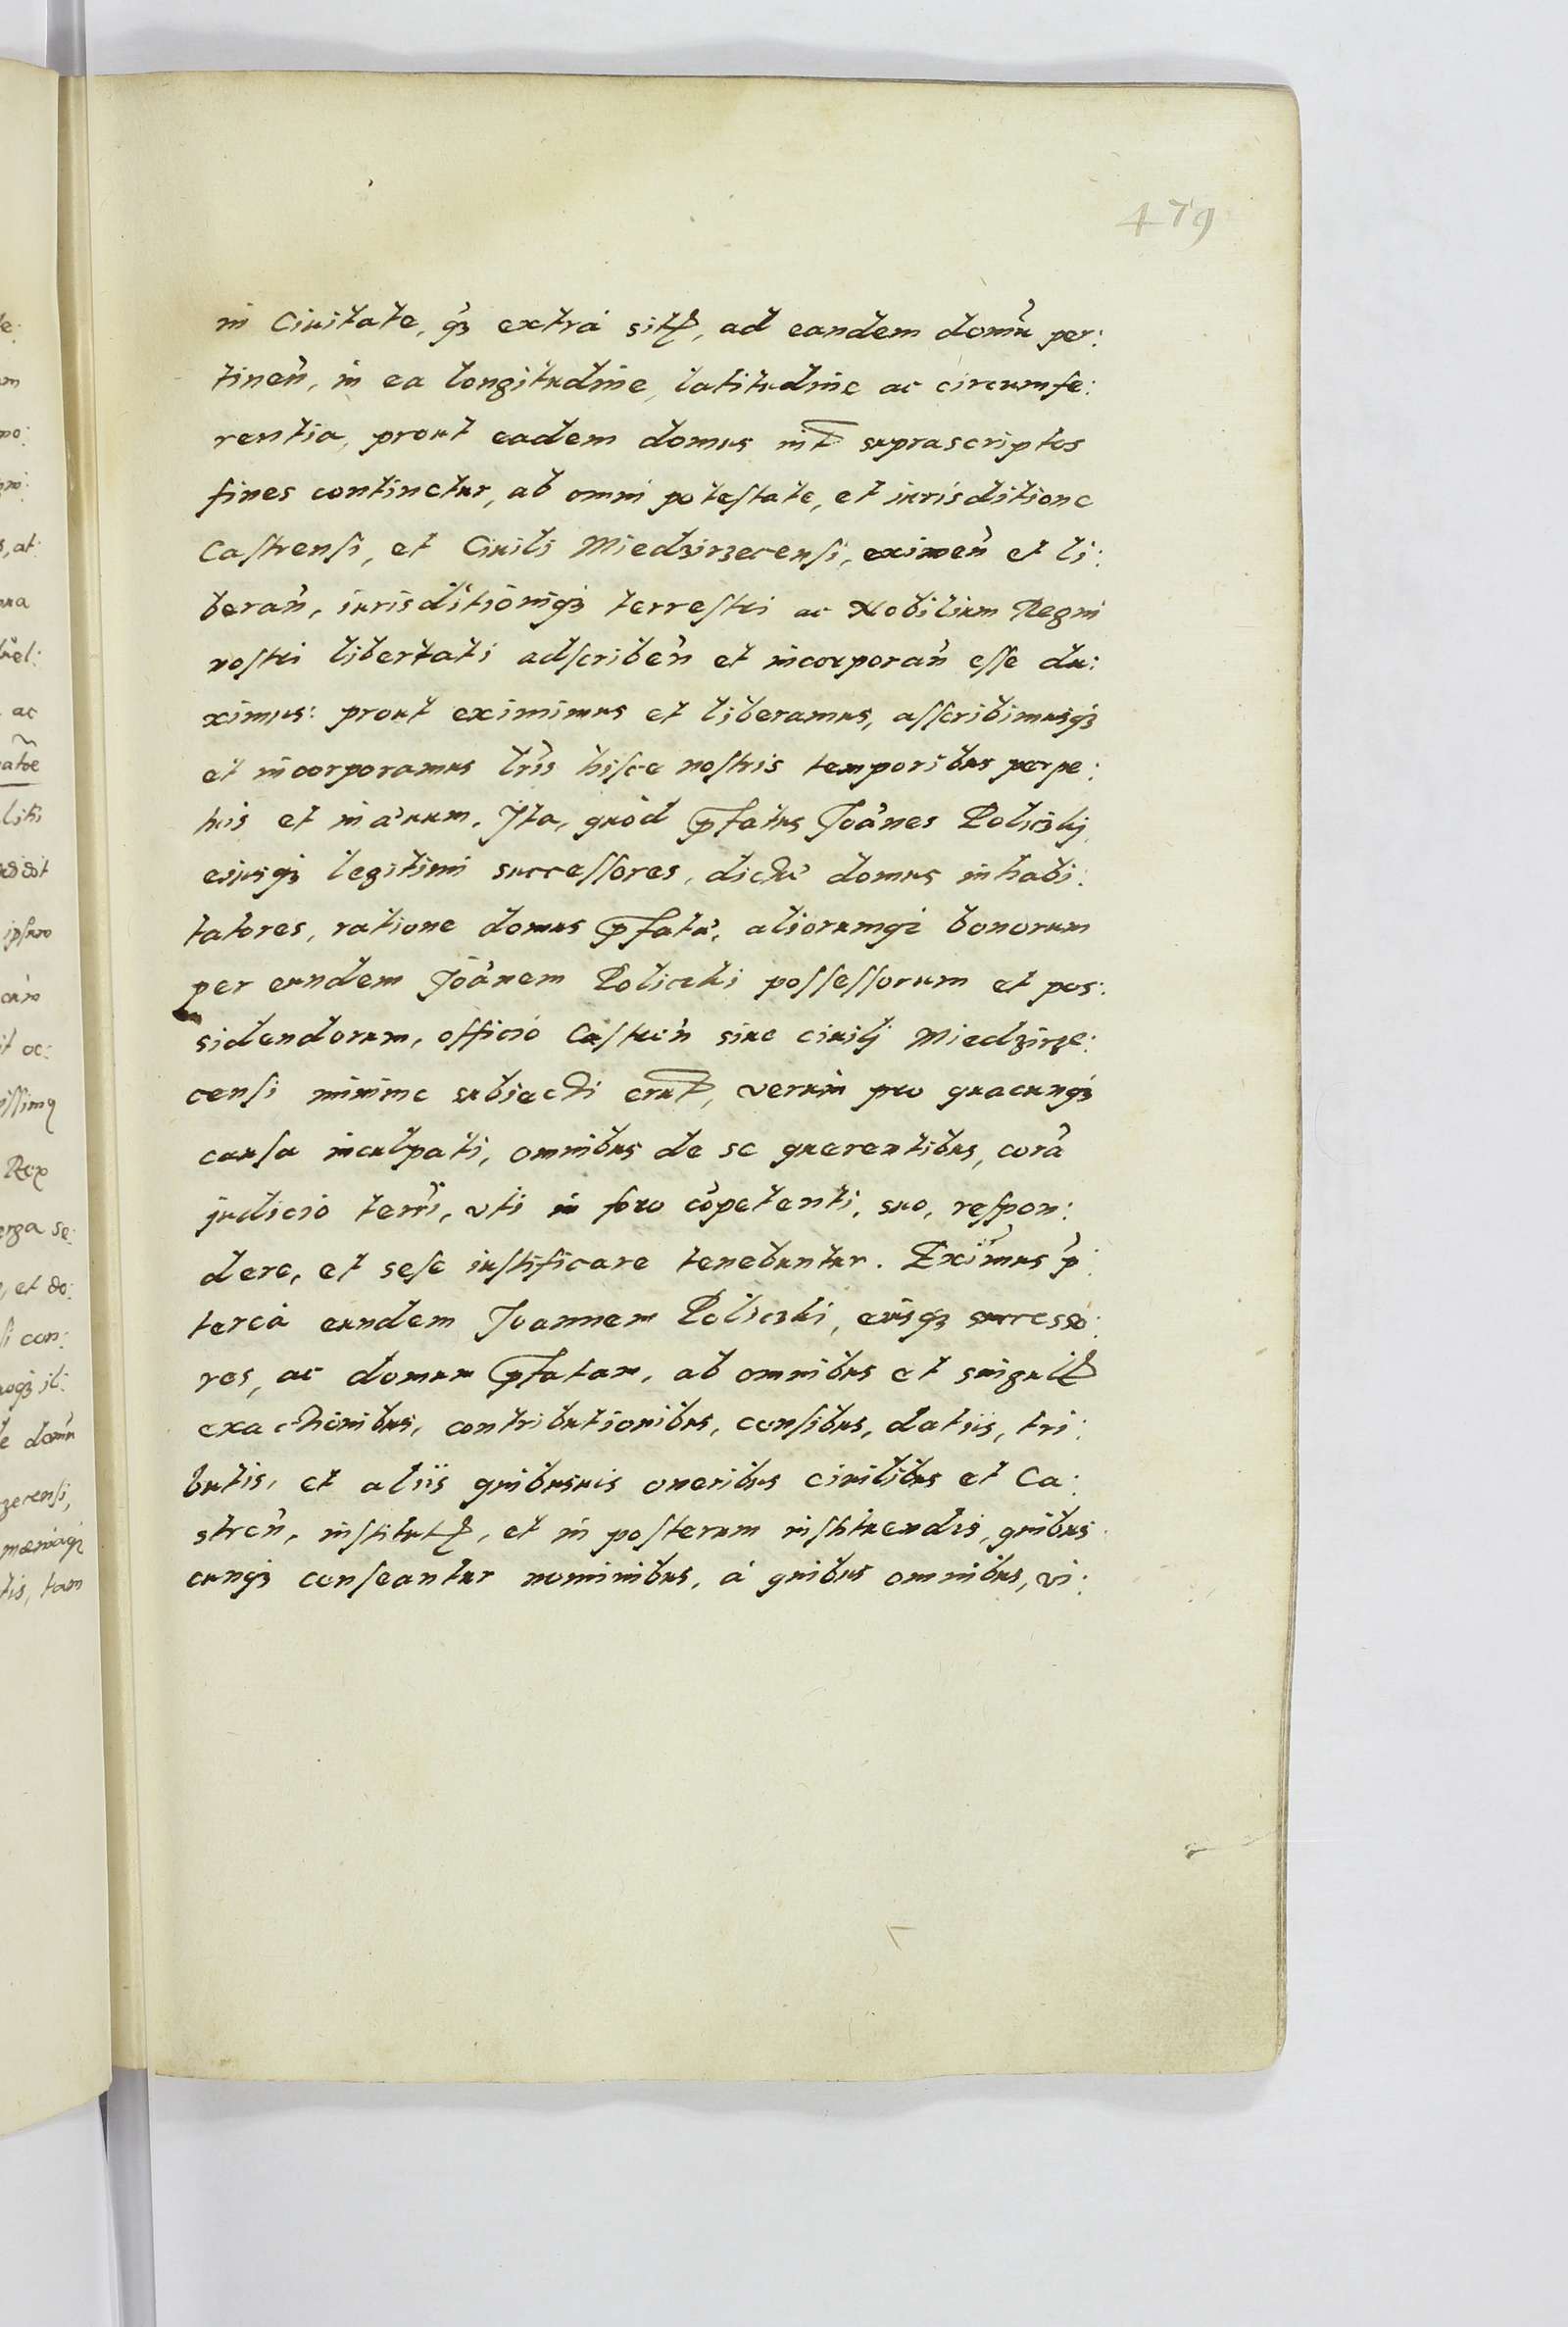 479
in Ciuitate, q́ꝫ extrà sitꝭ, ad eandem domũ per:
tineñ, in ea longitudine, latitudine ac circumfe:
rentia, prout eadem domus int̃ suprascriptos
fines continetur, ab omni poteſtate, et iurisditione
Caſtrenſi, et Ciuili Miedzirzecenſi, eximeñ et li:
berañ, iurisditioniqꝫ terreſtri ac Nobilium Regni
noſtri libertati adſcribeñ et incorporañ eſſe du:
ximus: prout eximimus et liberamus, aſſcribimusqꝫ
et incorporamus lr̃is hiſce noſtris temporibus perpe:
tuis et in æuum. Ita, quòd p̃fatus Joãnes Policzkÿ
eiusqꝫ legitimi succeſſores, dictæ domus inhabi:
tatores, ratione domus p̃fatæ, aliorumqꝫ bonorum
per eundem Joãnem Policzki poſſeſſorum et pos:
sidendorum, officio Caſtreñ siue ciuilj Miedzirze:
censi minime subiecti erũt, verum pro quacunqꝫ
cauſa inculpati, omnibus de se querentibus, corã
judicio terr̃i, vti in foro cõpetenti, suo, reſpon:
dere, et seſe iuſtificare tenebuntur. Exim̃us p̃:
tereà eundem Joannem Policzki, eiusqꝫ successo:
res, ac domum p̃fatam, ab omnibus et singulꝭ
exactionibus, contributionibus, cenſibus, datijs, tri:
butis, et alijs quibusuis oneribus ciuilibus et Ca:
streñ, inſtitutꝭ, et in poſterum inſtituendis, quibus
cunqꝫ cenſeantur nominibus, à quibus omnibus, vi: